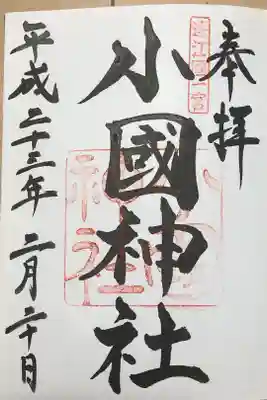 奉拝
遠江國一宮
小國神社
平成二十三年二月二十日